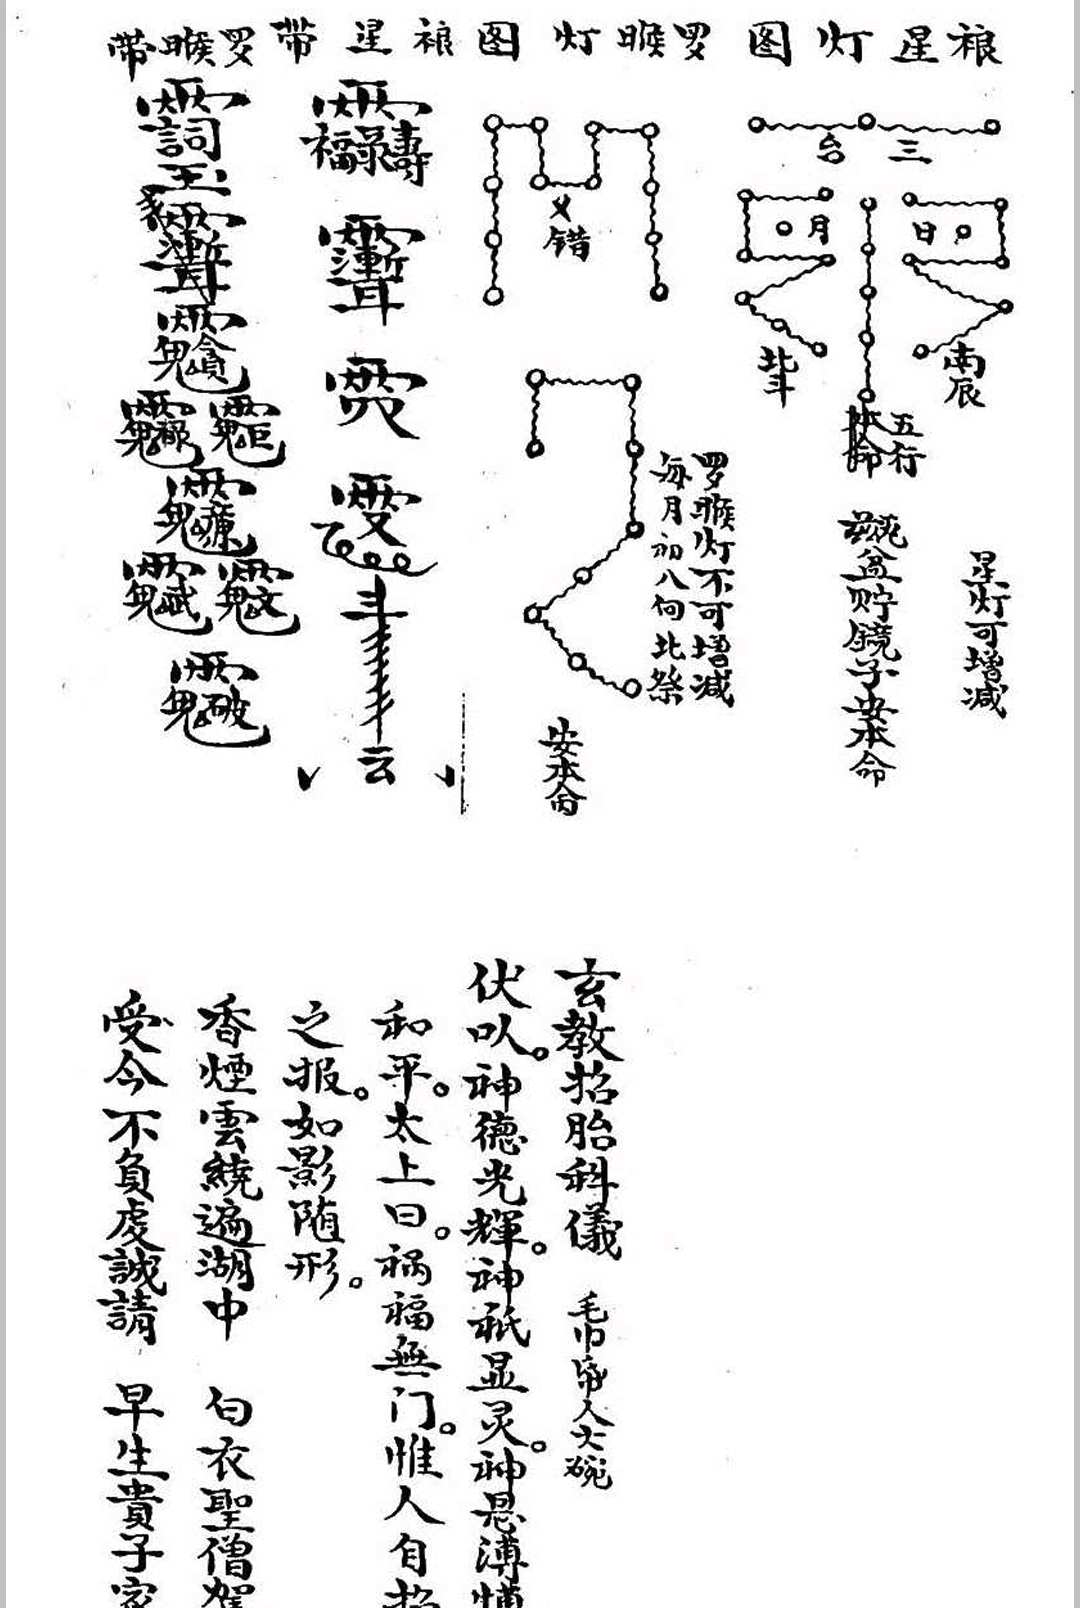 禳星灯图
罗睺灯图
禳星带
罗睺带
三台
日
月
南辰
北斗
五行
本命
星灯可增减
瓷盆贮镜子安本命
乂错
罗睺灯不可增减
每月初八向北祭
安本命
福祿壽
斗
云
玄教招胎科儀
毛巾 人大碗
伏以。神德光輝。神祇显灵。神恩溥博
和平。太上曰。祸福無门。惟人自招
之报。如影随形。
香煙雲繞遍湖中 白衣聖僧駕
受今不負虔誠請 早生貴子家